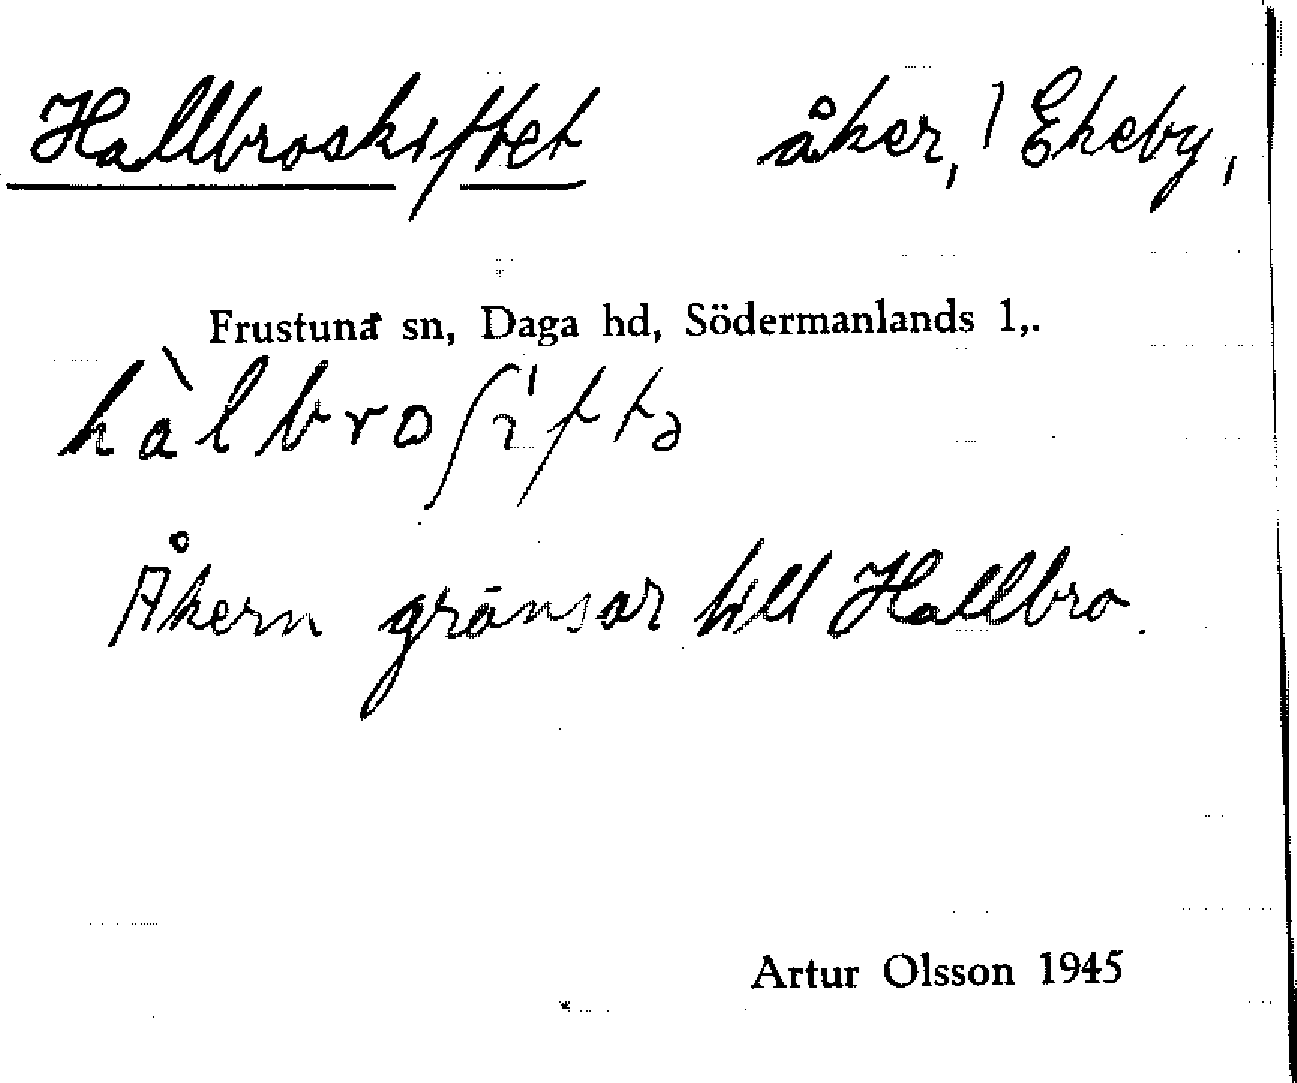 Hallbroskiftet åker, / Ekeby,
Frustuna sn, Daga hd, Södermanlands l,.
hàlbroʃiftə
Åkern gränsar till Hallbro.
Artur Olsson 1945